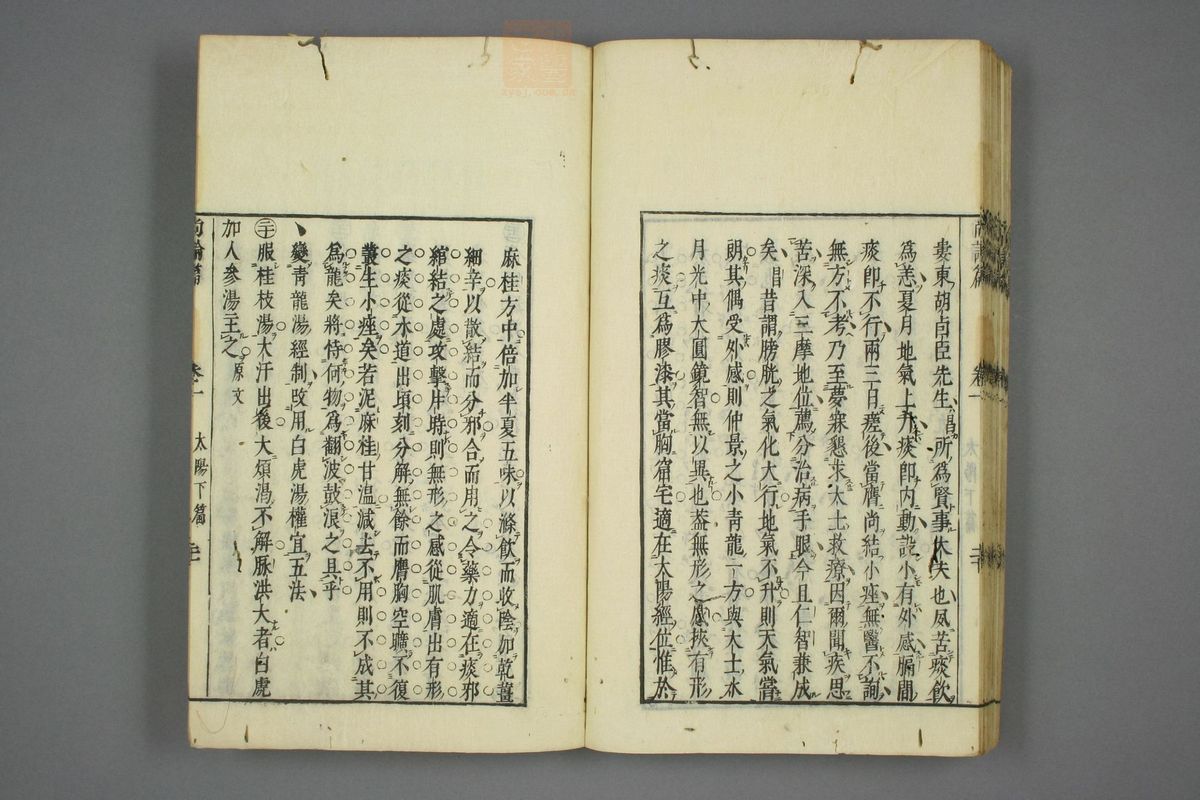 婁東胡卣臣先生昌所爲賢事大夫也夙苦痰飲
爲恙夏月地氣上升痰即内動設小有外感膈間
痰即不行兩三日瘥後當膺尚結小痤無醫不詢
無方不考乃至夢寐懇求大士救療因爾聞疾思
苦深入三摩地位薦分治病手眼今且仁智兼成
矣昌昔謂膀胱之氣化大行地氣不升則天氣嘗
朗其偶受外感則仲景之小青龍一方與大士水
月光中大圓鏡智無以異也葢無形之感挾有形
之痰互爲膠漆其當胸窟宅適在太陽經位惟於
麻桂方中倍加半夏五味以滌飲而收陰加乾薑
細辛以散結而分邪合而用之令藥力適在痰邪
綰結之處攻擊片時則無形之感從肌膚出有形
之痰從水道出頃刻分解無餘而膺胸空曠不復
叢生小痤矣若泥麻桂甘温減去不用則不成其
爲龍矣將恃何物爲翻波鼓浪之具乎
變青龍湯經制改用白虎湯權宜五法
二十服桂枝湯大汗出後大煩渴不解脉洪大者白虎
加人參湯主之原文
尚論篇 卷一 太陽下篇